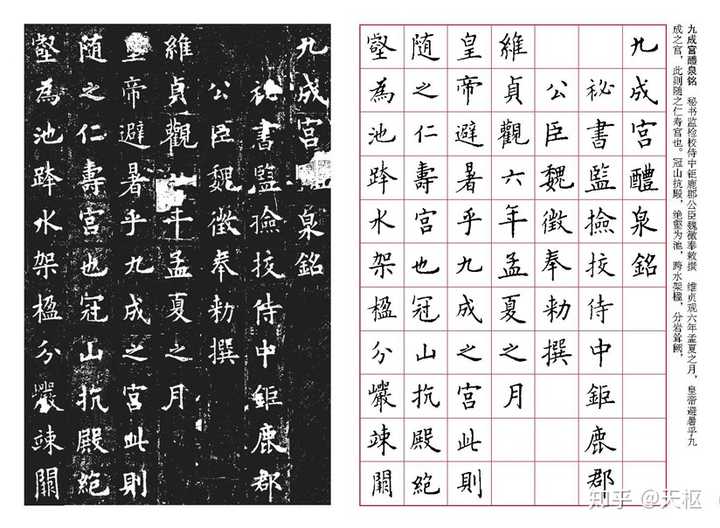 九成宫醴泉铭 秘书监检校侍中钜鹿郡公臣魏徵奉敕撰 维贞观六年孟夏之月，皇帝避暑乎九
成之宫，此则随之仁寿宫也。冠山抗殿，绝壑为池，跨水架楹，分岩耸阙，
九成宮醴泉銘
秘書監撿挍侍中鉅鹿郡
公臣魏徵奉勑撰
維貞觀六年孟夏之月
皇帝避暑乎九成之宮此則
隨之仁壽宮也冠山抗殿絕
壑為池跨水架楹分巖竦闕
九成宮泉銘
秘書監撿挍侍中鉅鹿郡
公臣魏徵奉勑撰
維貞觀年孟夏之月
皇帝避暑乎九成之宮此則
隨之仁壽宮也冠山抗殿絕
壑為池跨水架楹分巖竦闕
知乎 @天枢